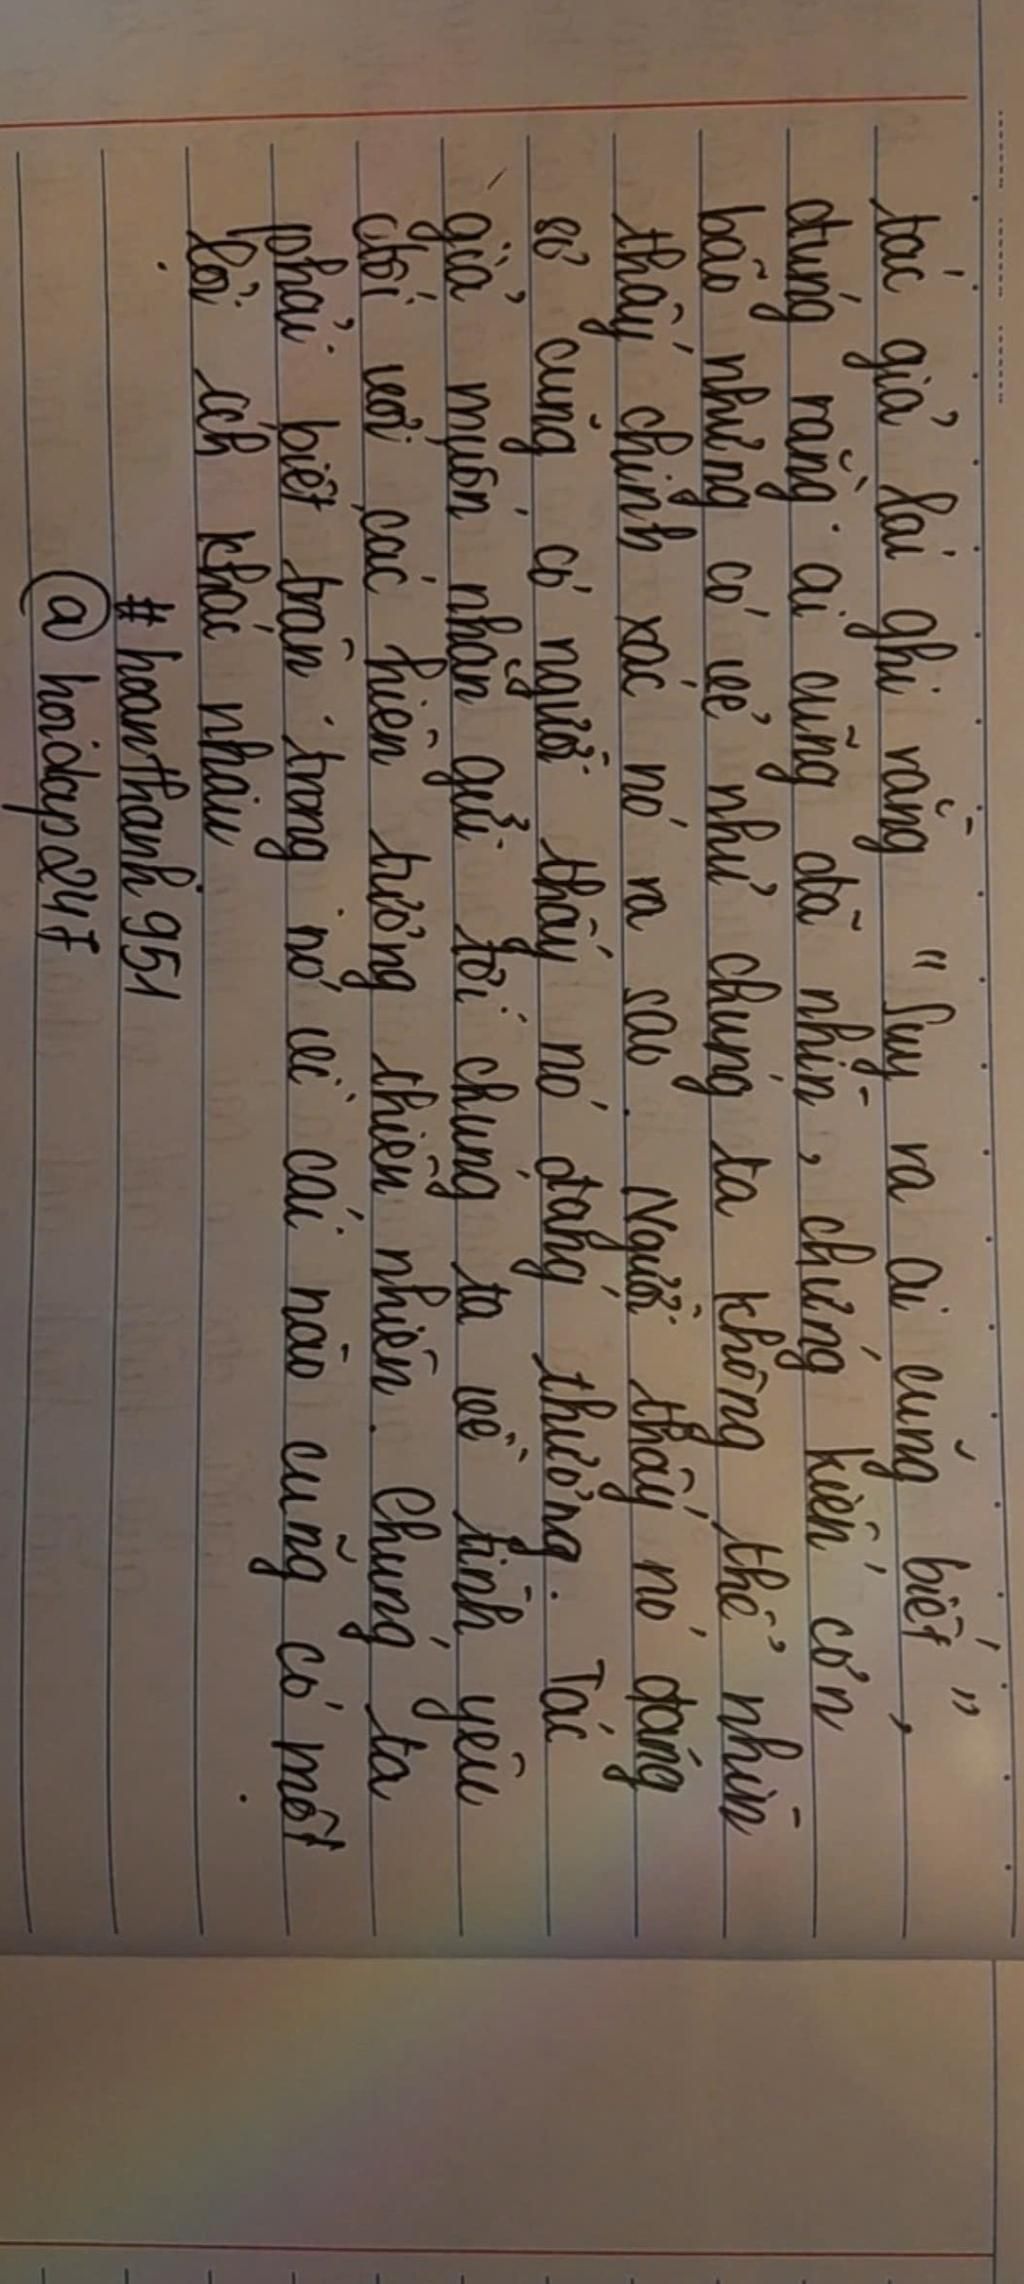 tác giả lại ghi rằng " Suy ra ai cũng biết ",
đúng rằng ai cũng đã nhìn, chứng kiến cơn
bão nhưng có vẻ như chúng ta không thể nhìn
thấy chính xác nó ra sao. Người thấy nó đáng
sợ cũng có người thấy nó đáng thương. Tác
giả muốn nhắn gửi tới chúng ta về tình yêu
đối với các hiện tượng thiên nhiên. Chúng ta
phải biết trân trọng nó vì cái nào cũng có một
lợi ích khác nhau.
#hoanthanh951
@hoidap247